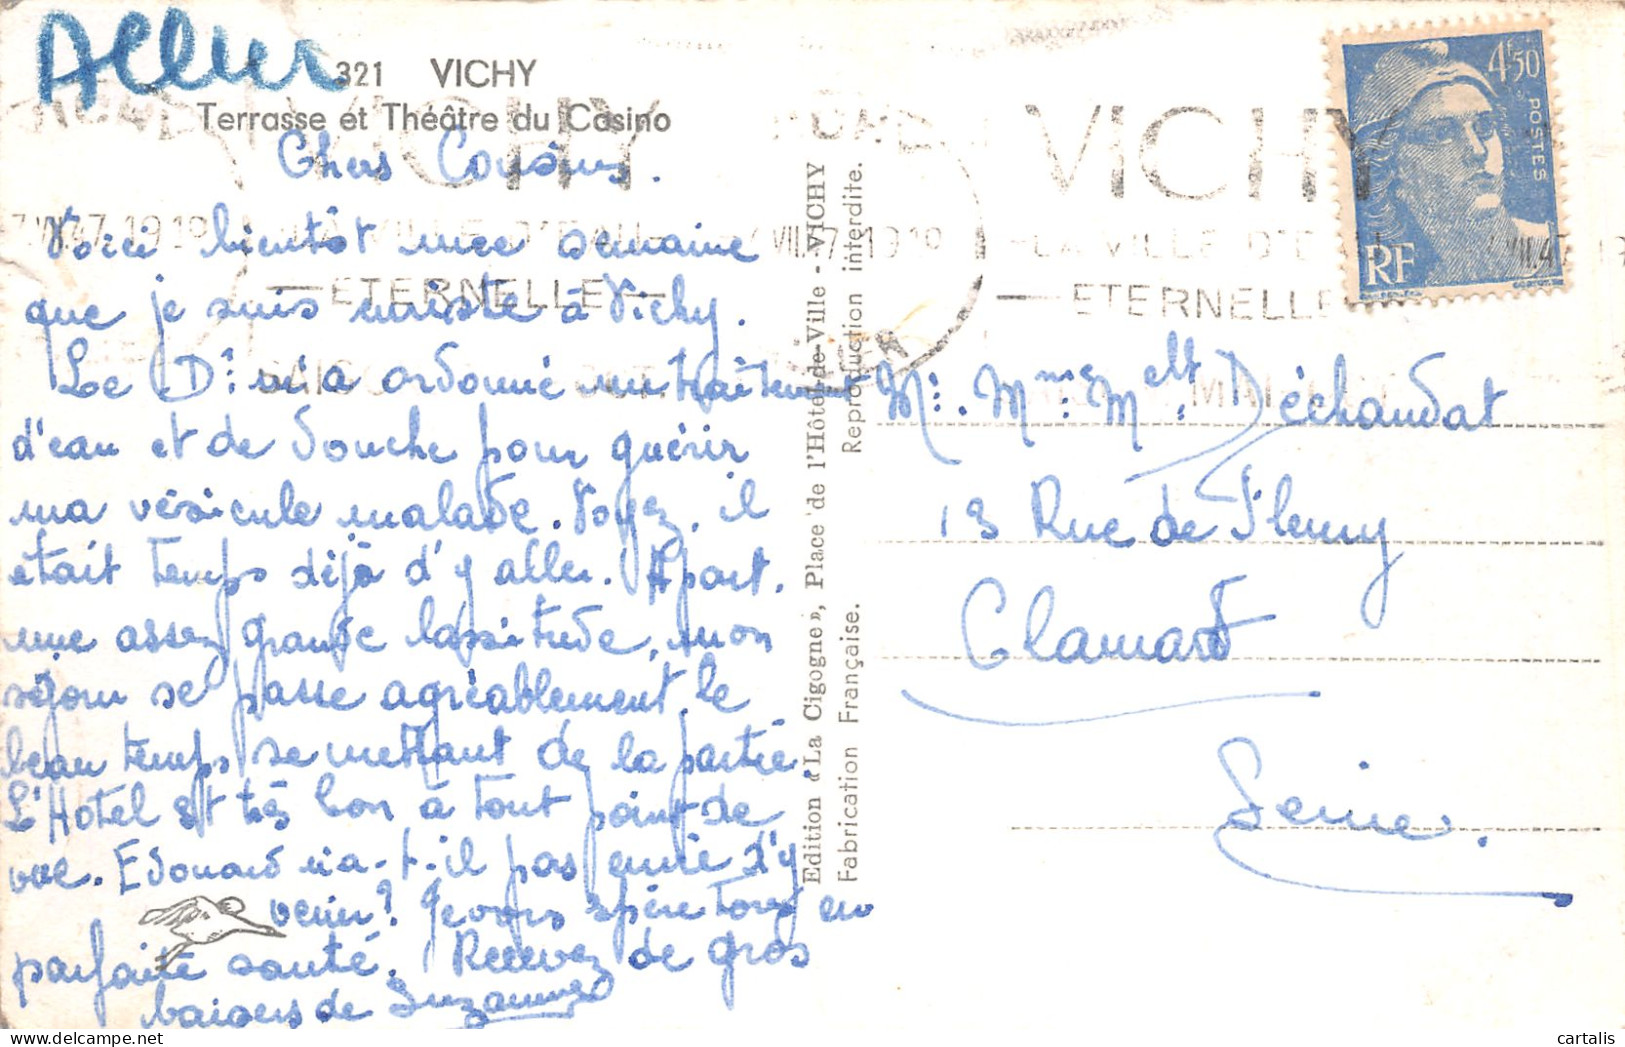 Allier
321 VICHY
Terrasse et Théâtre du Casino
Chers Cousins.
Voici bientôt une semaine
que je suis curiste à Vichy.
Le Dr m'a ordonné un traitement
d'eau et de douche pour guérir
ma vésicule malade. Voyez, il
était temps déjà d'y aller. Apart.
une assez grande lassitude, mon
séjour se passe agréablement, le
beau temps se mettant de la partie.
L'Hotel est très bon à tout point de
vue. Edouard n'a-t-il pas envie d'y
venir? Je vous espère tous en
parfaite santé. Recevez de gros
baisers de Suzanne
Edition «La Cigogne», Place de l'Hôtel-de-Ville - VICHY
Fabrication Française. Reproduction interdite.
VICHY
LA VILLE D'EAU
ETERNELLE
4F50
POSTES
RF
Mr. Mme Melle Déchaudat
13 Rue de Fleury
Clamart
Seine.
cartalis